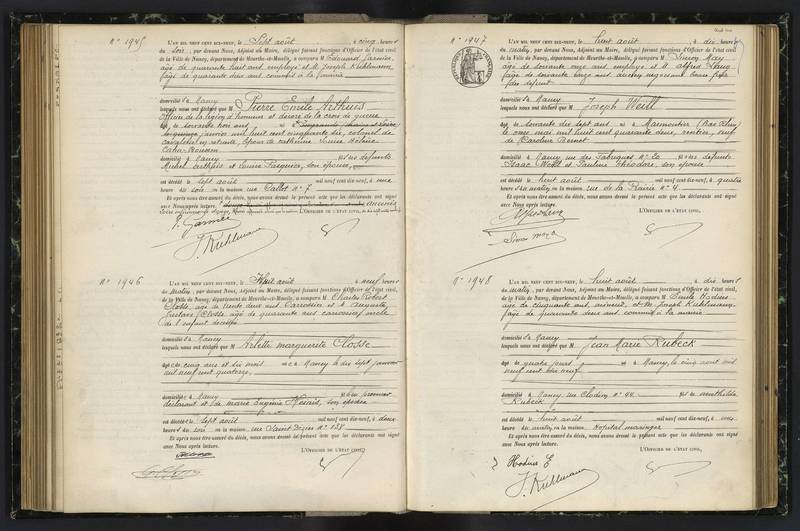 N° 1945
L'AN MIL NEUF CENT DIX-NEUF, le Sept août à cinq heures
du soir, par devant Nous, Adjoint au Maire, délégué faisant fonctions d'Officier de l'état civil
de la Ville de Nancy, département de Meurthe-et-Moselle, a comparu M Edouard Garnier,
âgé de quarante huit ans employé et M. Joseph Kuhlmann
âgé de quarante deux ans commis à la mairie
domicilié à Nancy
lesquels nous ont déclaré que M Pierre Emile Arthuis
Officier de la légion d'honneur et décoré de la croix de guerre
âgé de soixante
janvier mil huit cent cinquante six, colonel de
cavalerie en retraite, époux de Catherine Louise
domicilié à Nancy fils des défunts
Michel Arthuis et Louise son épouse
est décédé le sept août mil neuf cent dix-neuf, à une
heure du soir en la maison rue Callot n° 7
Et après nous être assuré du décès, nous avons dressé le présent acte que les déclarants ont signé
avec Nous après lecture.
L'OFFICIER DE L'ÉTAT CIVIL,
J. Kuhlmann
N° 1946
L'AN MIL NEUF CENT DIX-NEUF, le Huit août à neuf heures
du matin, par devant Nous, Adjoint au Maire, délégué faisant fonctions d'Officier de l'état civil,
de la Ville de Nancy, département de Meurthe-et-Moselle, a comparu M Charles Robert
Closse, âgé de trente deux ans Carrossier et Auguste
Gustave Closse âgé de quarante ans carrossier oncle
de l'enfant décédée
domicilié à Nancy
lesquels nous ont déclaré que M Arlette Marguerite Closse
âgée de cinq ans et six mois née à Nancy le dix sept janvier
mil neuf cent quatorze
domiciliée à Nancy fille du premier
déclarant et de Marie Eugénie son épouse
est décédée le sept août mil neuf cent dix-neuf, à deux
heures du soir en la maison rue Saint Dizier n° 138
Et après nous être assuré du décès, nous avons dressé le présent acte que les déclarants ont signé
avec Nous après lecture.
L'OFFICIER DE L'ÉTAT CIVIL,
N° 1947
L'AN MIL NEUF CENT DIX-NEUF, le huit août à dix heures
du matin, par devant Nous, Adjoint au Maire, délégué faisant fonctions d'Officier de l'état civil
de la Ville de Nancy, département de Meurthe-et-Moselle, a comparu M Simon May
âgé de soixante onze ans employé et M. Alfred
âgé de soixante cinq ans négociant beau frère
du défunt
domicilié à Nancy
lesquels nous ont déclaré que M Joseph Weill
âgé de soixante dix sept ans né à Marmoutier (Bas Rhin)
le onze mai mil huit cent quarante deux, rentier, veuf
de Caroline
domicilié à Nancy rue des Fabriques n° 20 fils des défunts
Isaac Weill et Pauline Théodore, son épouse
est décédé le huit août mil neuf cent dix-neuf, à quatre
heures du matin, en la maison rue de la Prairie n° 4
Et après nous être assuré du décès, nous avons dressé le présent acte que les déclarants ont signé
avec Nous après lecture.
L'OFFICIER DE L'ÉTAT CIVIL,
Simon May
N° 1948
L'AN MIL NEUF CENT DIX-NEUF, le huit août à dix heures
du matin, par devant Nous, Adjoint au Maire, délégué faisant fonctions d'Officier de l'état civil,
de la Ville de Nancy, département de Meurthe-et-Moselle, a comparu M Emile Hodier
âgé de cinquante ans, et M. Joseph Kuhlmann
âgé de quarante deux ans commis à la mairie
domicilié à Nancy
lesquels nous ont déclaré que M Jean Marie Kubeck
âgé de quatre jours né à Nancy, le cinq août mil
neuf cent dix neuf
domicilié à Nancy rue Clodion n° 44 fils de Mathilde
Kubeck
est décédé le huit août mil neuf cent dix-neuf, à une
heure du matin en la maison Hôpital Maringer
Et après nous être assuré du décès, nous avons dressé le présent acte que les déclarants ont signé
avec Nous après lecture.
L'OFFICIER DE L'ÉTAT CIVIL,
Hodier E
J. Kuhlmann